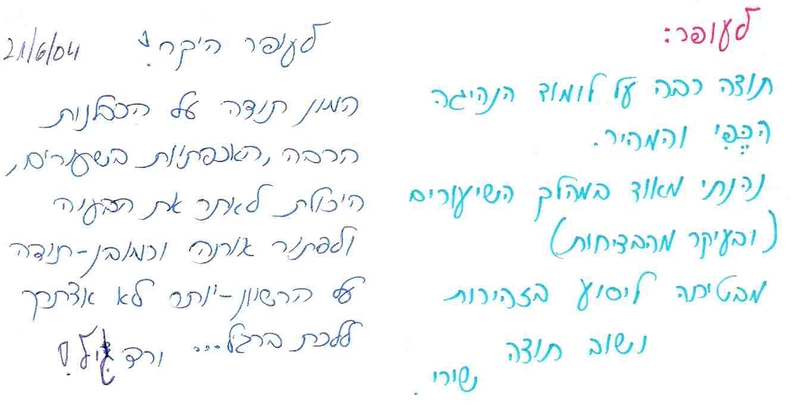 לעופר:
תודה רבה על לימוד הנהיגה
הכפי והמהיר.
נהנתי מאוד במהלך השיעורים
(ובעיקר מהבדיחות)
מבטיחה ליסוע בזהירות
ושוב תודה
שירי.
21/6/04
לעופר היקר!
המון תודה על הסבלנות
הרבה, האכפתיות בשעורים,
היכולת לאתר את הבעיה
ולפתור אותה וכמובן-תודה
על הרשיון-יותר לא אצטרך
ללכת ברגל... ורד